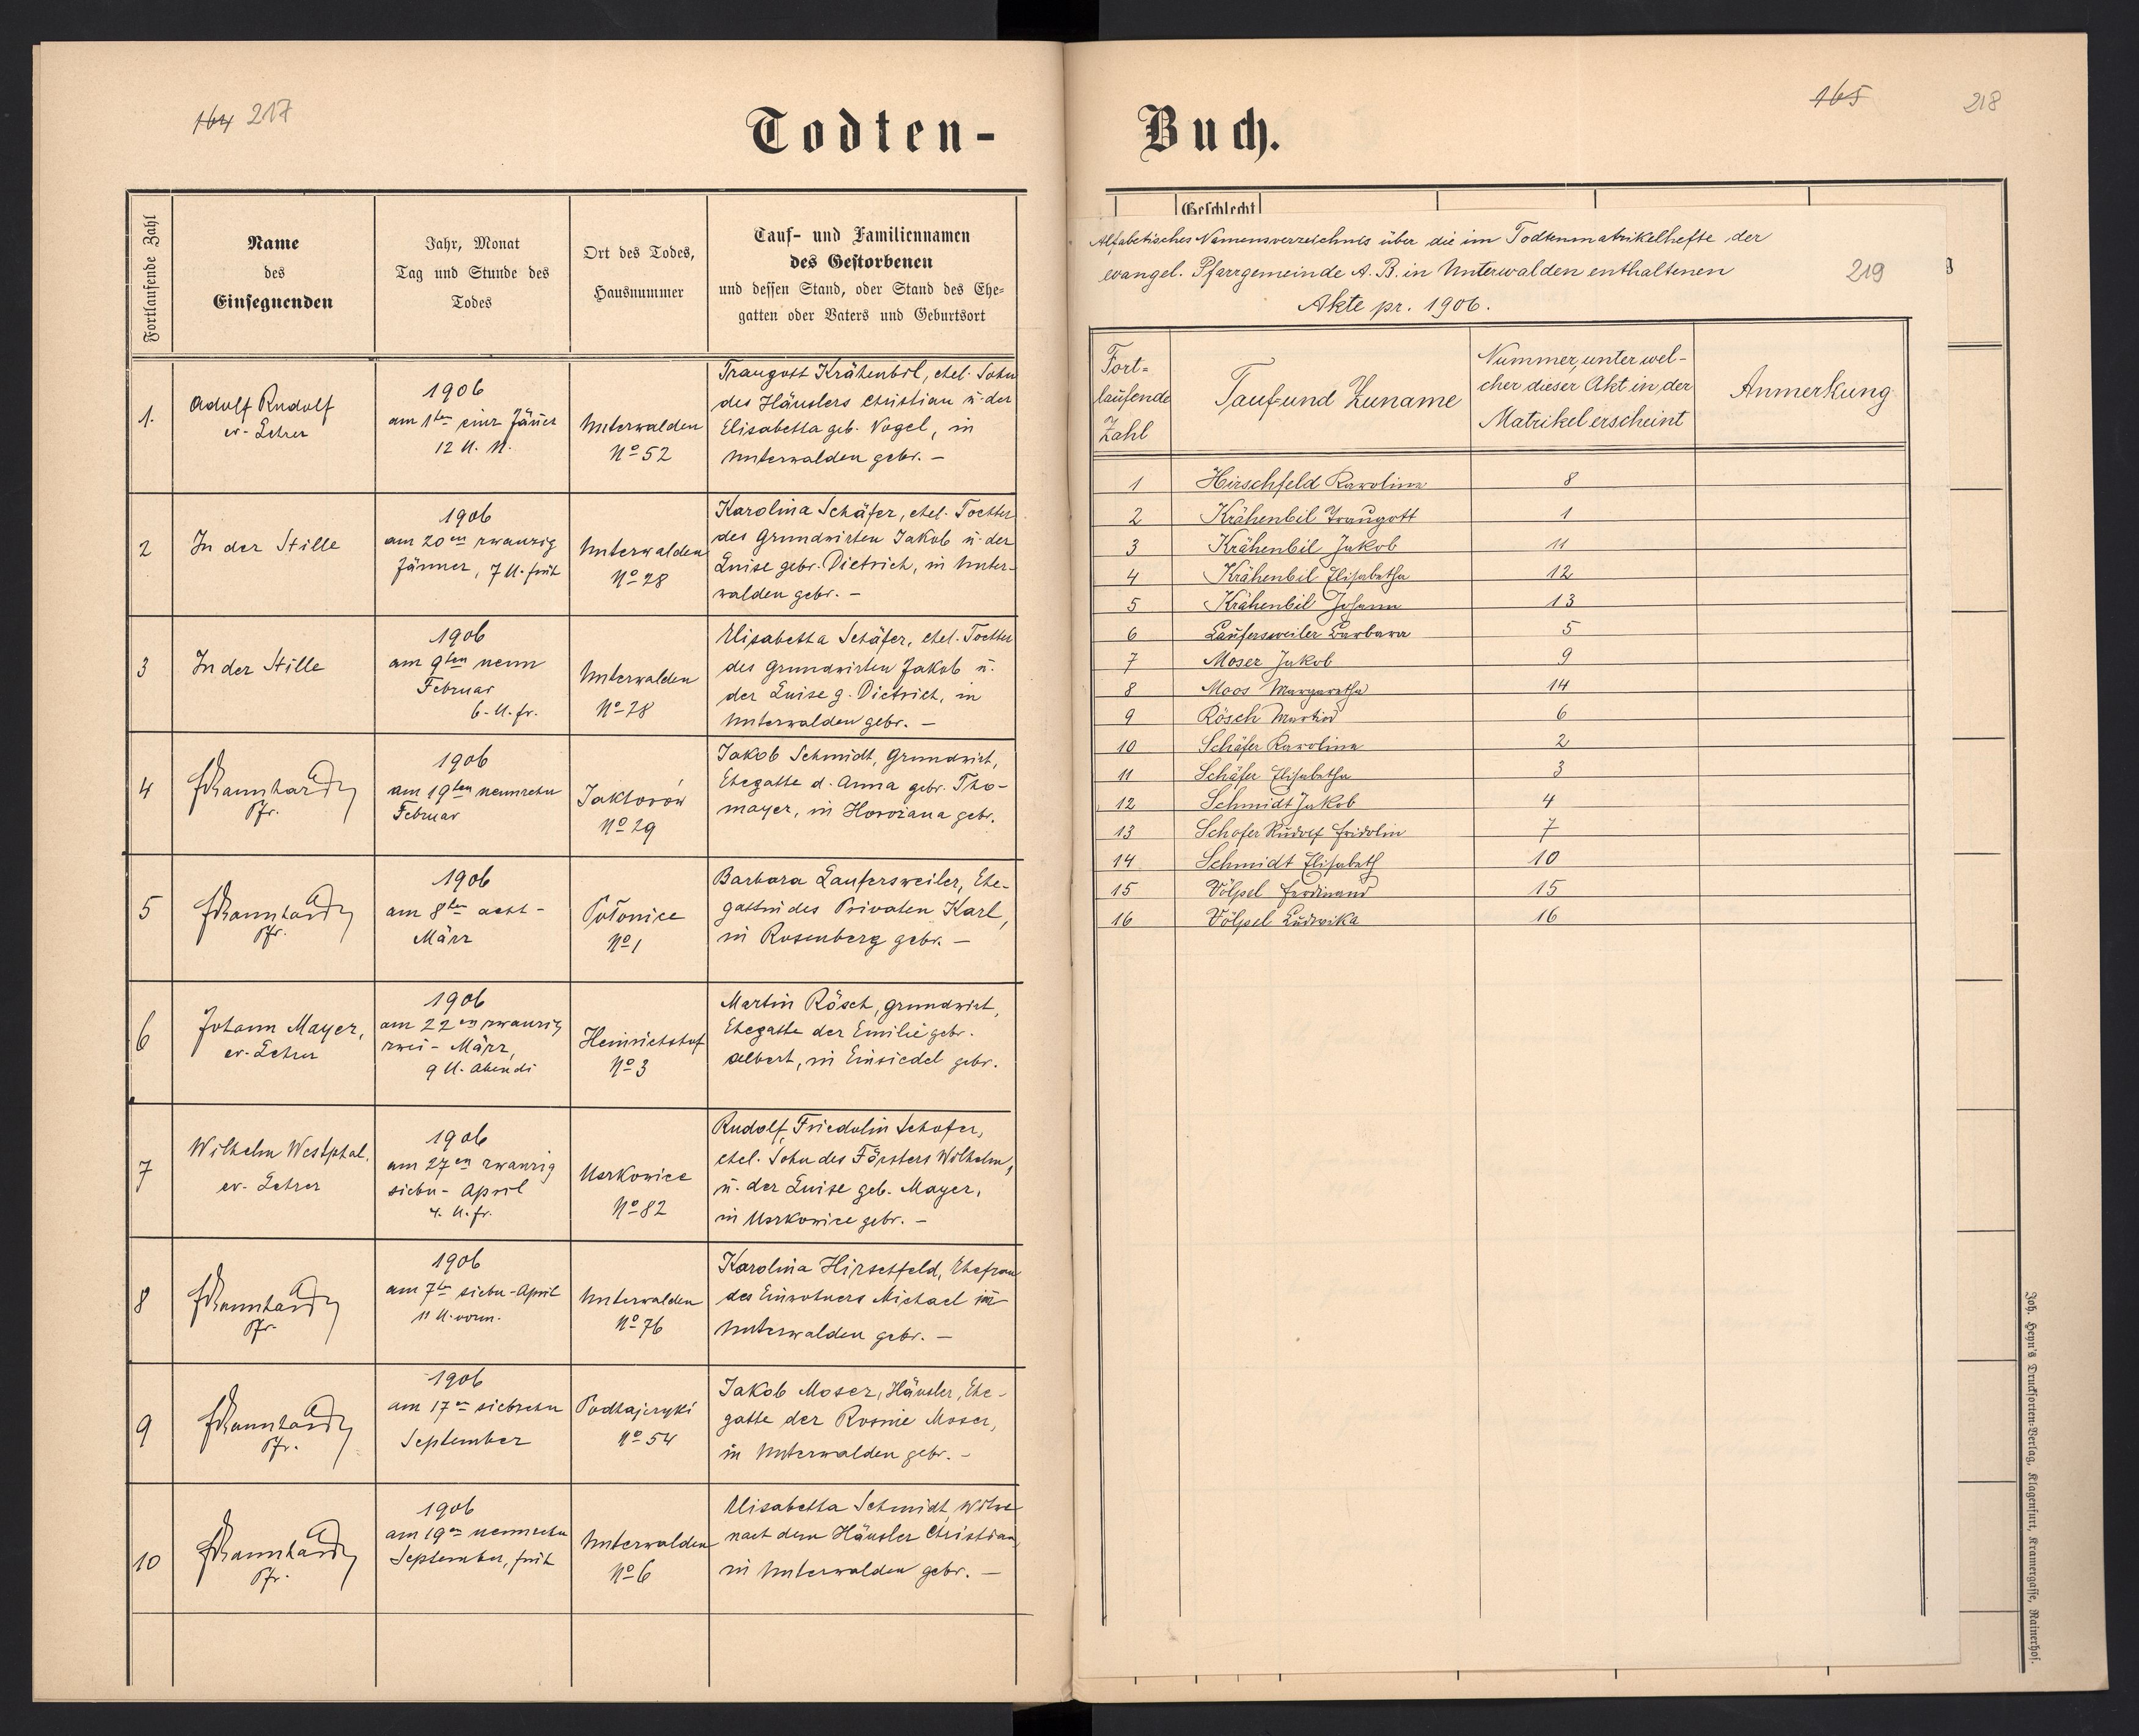 164 217
Todten-
Fortlaufende Zahl
Name
des
Einsegnenden
Jahr, Monat
Tag und Stunde des
Todes
Ort des Todes,
Hausnummer
Tauf- und Familiennamen
des Gestorbenen
und dessen Stand, oder Stand des Ehe-
gatten oder Vaters und Geburtsort
1.
Adolf Rudolf
ev. Lehrer
1906
am 1ten eins Jäner
12 U. N.
Unterwalden
No 52
Traugott Krähenbil, ehel. Sohn
des Häuslers Christian u. der
Elisabetha geb. Vogel, in
Unterwalden gebr. –
2
In der Stille
1906
am 20en zwanzig
Jänner, 7 U. früh
Unterwalden
No 28
Karolina Schäfer, ehel. Tochter
des Grundwirten Jakob u. der
Luise gebr. Dietrich, in Unter-
walden gebr. –
3
In der Stille
1906
am 9ten neun
Februar
6. U. fr.
Unterwalden
No 28
Elisabetha Schäfer, ehel. Tochter
des Grundwirten Jakob u.
der Luise g. Dietrich, in
Unterwalden gebr. –
4
Pfr.
1906
am 19ten neunzehn
Februar
Jaktorów
No 29
Jakob Schmidt, Grundwirt,
Ehegatte d. Anna gebr. Tho-
mayer, in gebr.
5
Pfr.
1906
am 8ten acht -
März
Połonice
No 1
Barbara Laufersweiler, Ehe-
gattin des Privaten Karl,
in Rosenberg gebr. –
6
Johann Mayer,
ev. Lehrer
1906
am 22en zwanzig
zwei - März,
9 U. Abends
Heinrichshof
No 3
Martin Rösch, Grundwirt,
Ehegatte der Emilie gebr.
Albert, in Einsiedel gebr.
7
Wilhelm Westphal.
ev. Lehrer
1906
am 27en zwanzig
sieben - April
4. U. fr.
Uszkowice
No 82
Rudolf Friedolin Schofer,
ehel. Sohn des Försters Wilhelm,
u. der Luise geb. Mayer,
in Uszkowice gebr. –
8
Pfr.
1906
am 7ten sieben - April
11 U. vorm.
Unterwalden
No 76
Karolina Hirschfeld, Ehefrau
des Einwohners Michael in
Unterwalden gebr. –
9
Pfr.
1906
am 17en siebzehn
September
Podhajczyki
No 54
Jakob Moser, Häusler, Ehe-
gatte der Rosine Moser,
in Unterwalden gebr. –
10
Pfr.
1906
am 19en neunzehn
September, früh
Unterwalden
No 6
Elisabetha Schmidt, Witwe
nach dem Häusler Christian
in Unterwalden gebr. –
165
218
Buch.
Geschlecht
Alfabetisches Namensverzeichnis über die im Todtenmatrikelhefte der
evangel. Pfarrgemeinde A. B. in Unterwalden enthaltenen
219
Akte pr. 1906.
Fort-
laufende
Zahl
Tauf und Zuname
Nummer, unter wel-
cher dieser Akt in der
Matrikel erscheint
Anmerkung
1 Hirschfeld Karolina 8
2 Krähenbil Traugott 1
3 Krähenbil Jakob 11
4 Krähenbil Elisabetha 12
5 Krähenbil Johann 13
6 Laufersweiler Barbara 5
7 Moser Jakob 9
8 Moos Margaretha 14
9 Rösch Martin 6
10 Schäfer Karolina 2
11 Schäfer Elisabetha 3
12 Schmidt Jakob 4
13 Schofer Rudolf Fridolin 7
14 Schmidt Elisabeth 10
15 Völpel Ferdinand 15
16 Völpel Ludwika 16
Joh. Heyn's Drucksorten-Verlag, Klagenfurt, Kramergasse, Rainerhof.